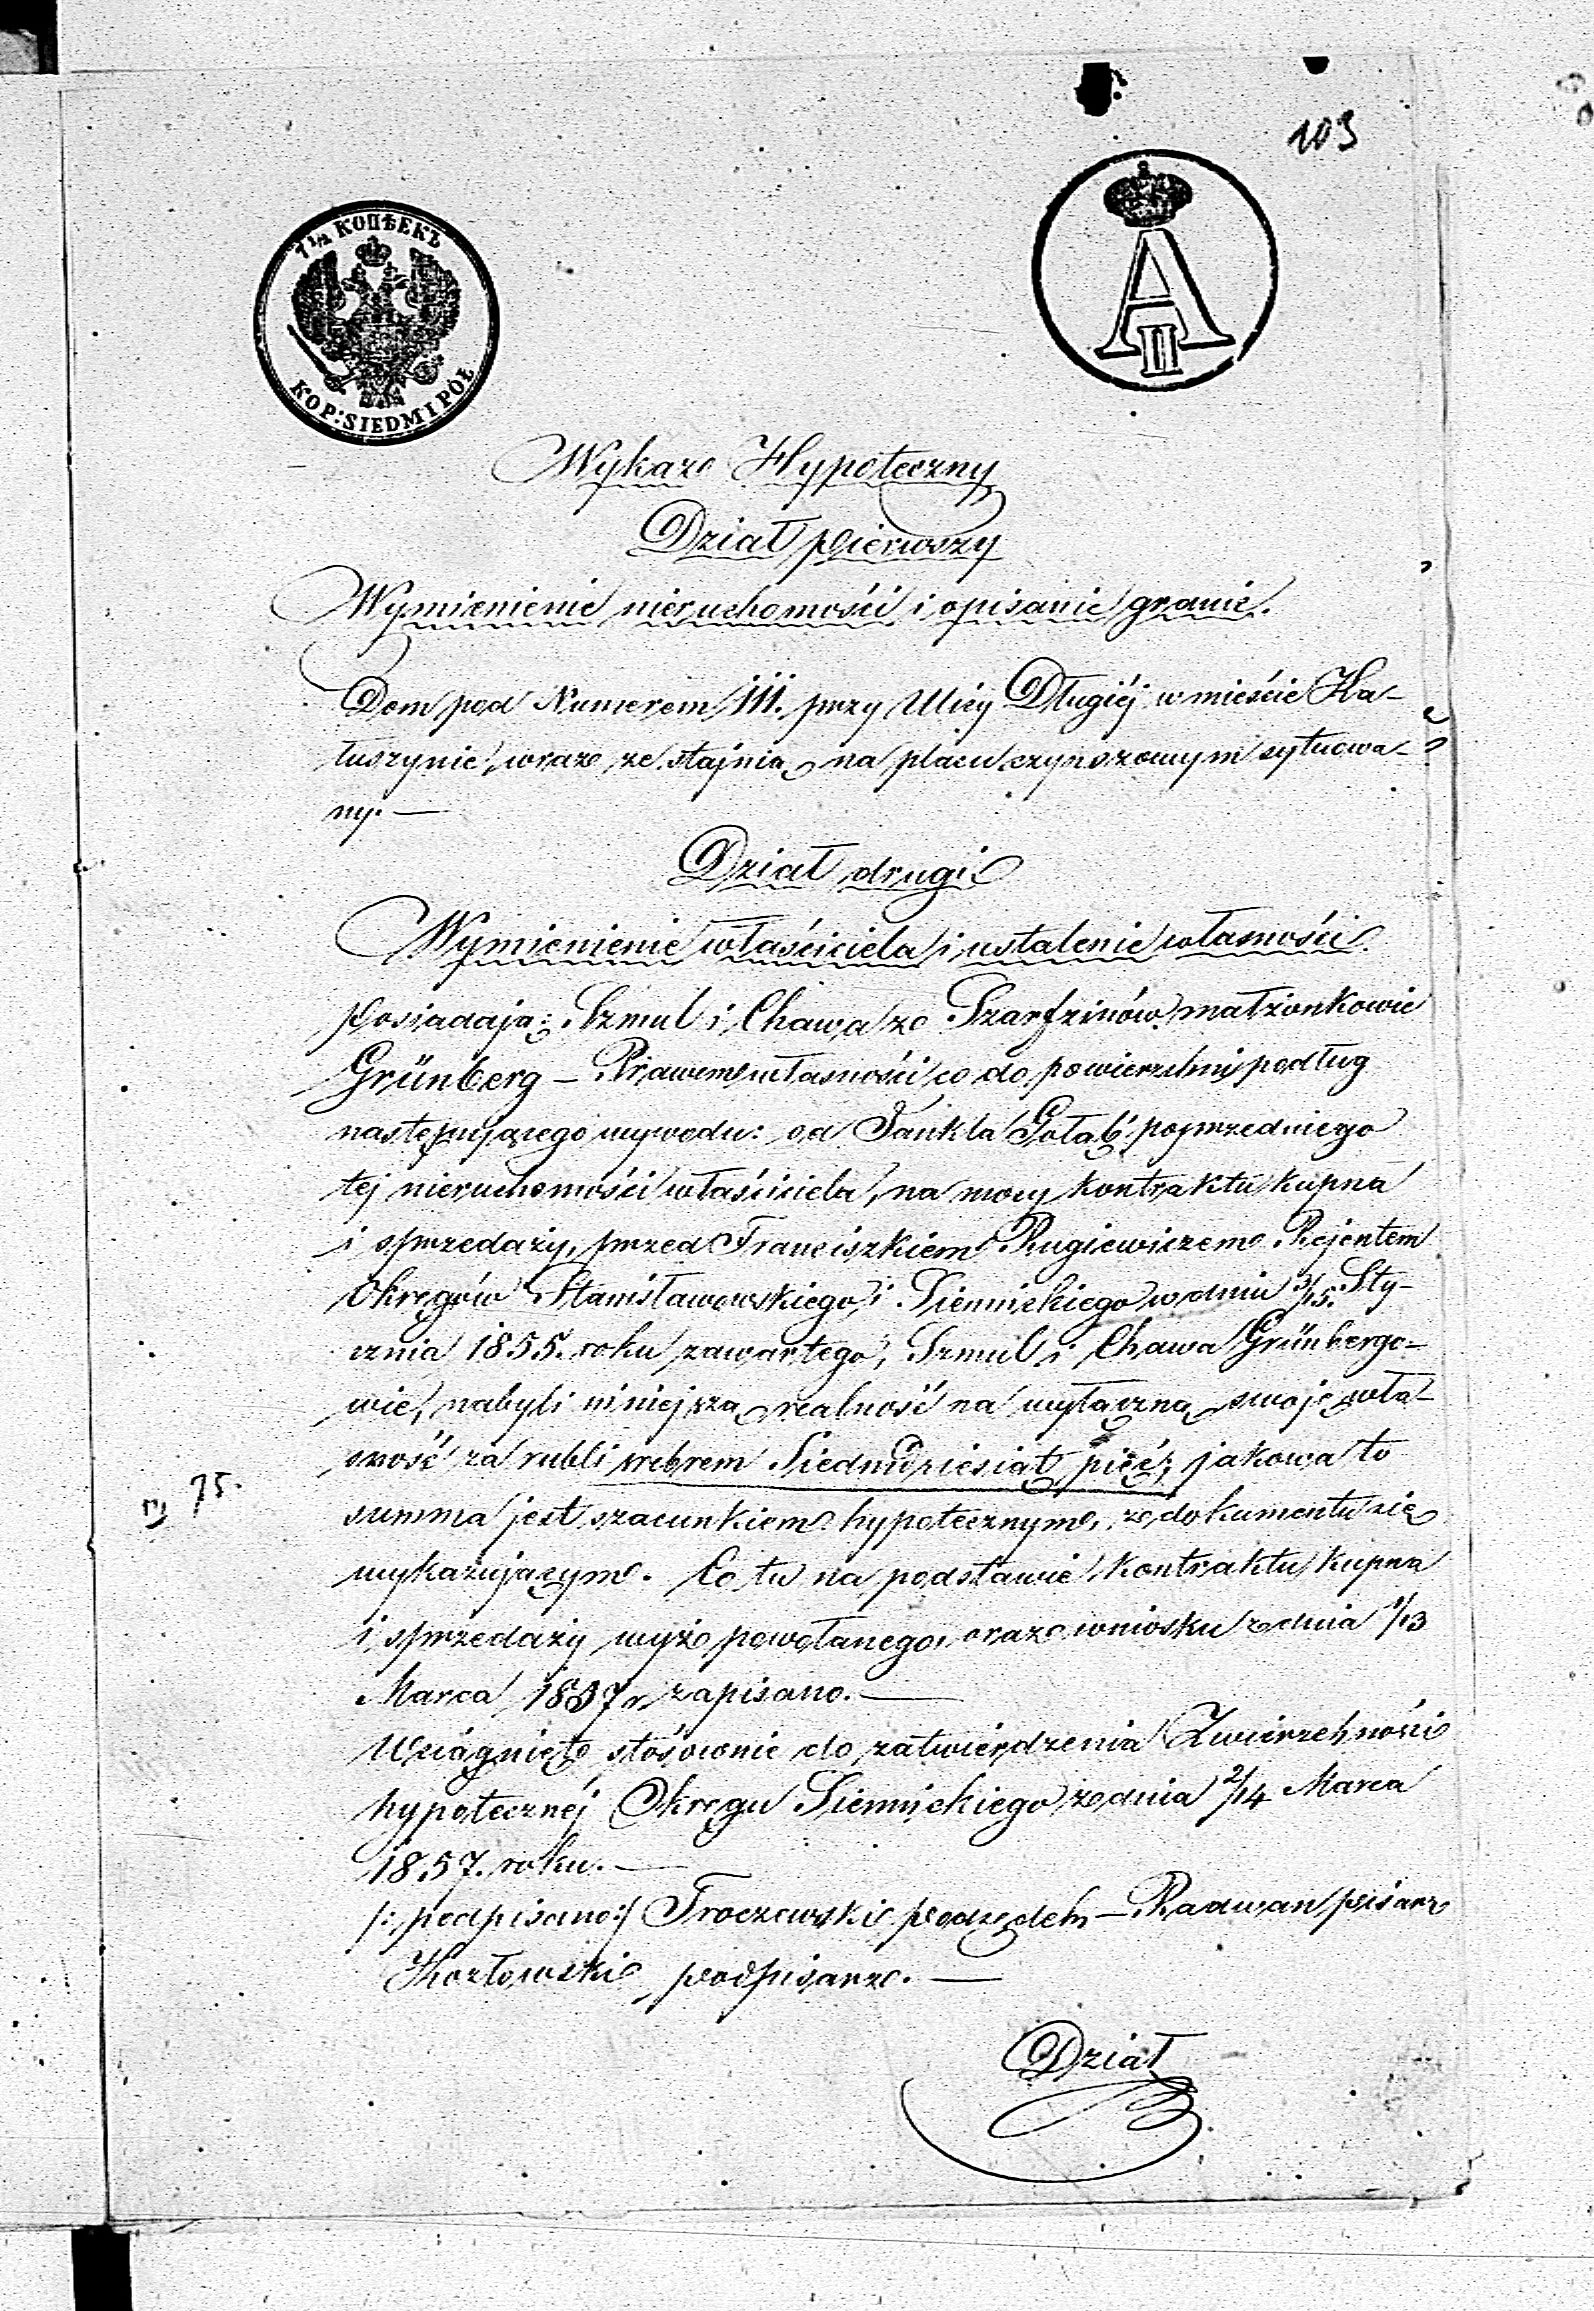 103
7 1/2 КОПѢЕКЪ
KOP: SIEDM I PÓŁ
A II
Wykaz Hypoteczny
Dział pierwszy
Wymienienie nieruchomości i opisanie granic.
Dom pod Numerem 111. przy Ulicy Długiéj w mieście Ka-
łuszynie, wraz ze stajnią na placu czynszowym sytuowa-
ny. —
Dział drugi
Wymienienie właściciela i ustalenie własności.
Posiadają: Szmul i Chawa ze Szarfzinów małżonkowie
Grünberg – Prawem własności co do powierzchni podług
następującego wywodu: od Jankla Gołąb poprzedniego
tej nieruchomości właściciela, na mocy kontraktu kupna
i sprzedaży, przed Franciszkiem Rugiewiczem Rejentem
Okręgów Stanisławowskiego i Siennickiego w dniu 3/15. Sty-
cznia 1855. roku zawartego, Szmul i Chawa Grünbergo-
wie, nabyli niniejszą realność na wyłączną swoję wła-
sność za rubli srebrem Siedmdziesiąt pięć, jakowa to
rs 75.
summa jest szacunkiem hypotecznym, z dokumentu się
wykazującym. Co tu na podstawie kontraktu kupna
i sprzedaży wyż powołanego, oraz wniosku z dnia 1/13
Marca 1857 r. zapisano. —
Wciągnięto stósownie do zatwierdzenia Zwierzchności
hypotecznéj Okręgu Siennickiego z dnia 2/14 Marca
1857. roku. —
/: podpisano :/ Troczewski Podsędek – Radwan pisarz
Kozłowski podpisarz. —
Dział